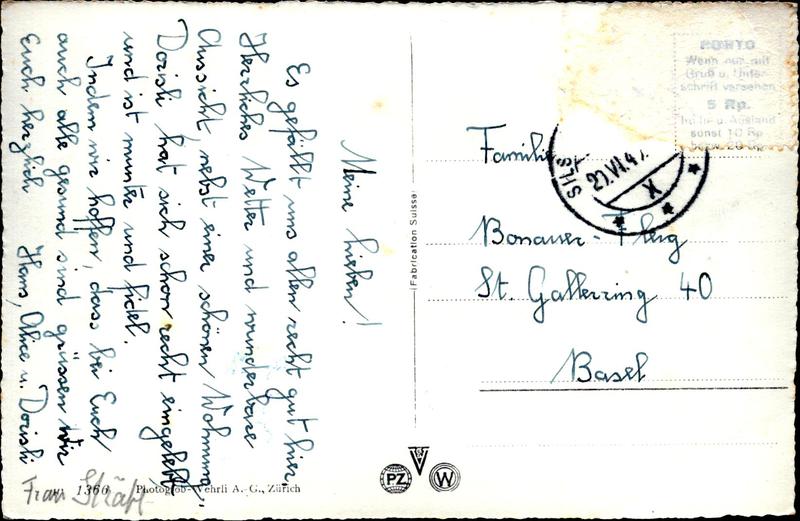 Meine Lieben!
Es gefällt uns allen recht gut hier.
Herrliches Wetter und wunderbare
Aussicht, nebst einer schönen Wohnung,
Dorisli hat sich schon recht eingelebt
und ist munter und fidel.
Indem wir hoffen, dass bei Euch
auch alle gesund sind grüssen wir
Euch herzlich Hans, Alice u. Dorisli
PORTO
Wenn nur mit
Gruß u. Unter-
schrift versehen
5 Rp.
In- u. Ausland
sonst 10 Rp
SILS
X
Familie
Bonauer-Flurg
St. Gallerring 40
Basel
(Fabrication Suisse)
PZ
W
Frau
1360 Photoglob-Wehrli A. G., Zürich